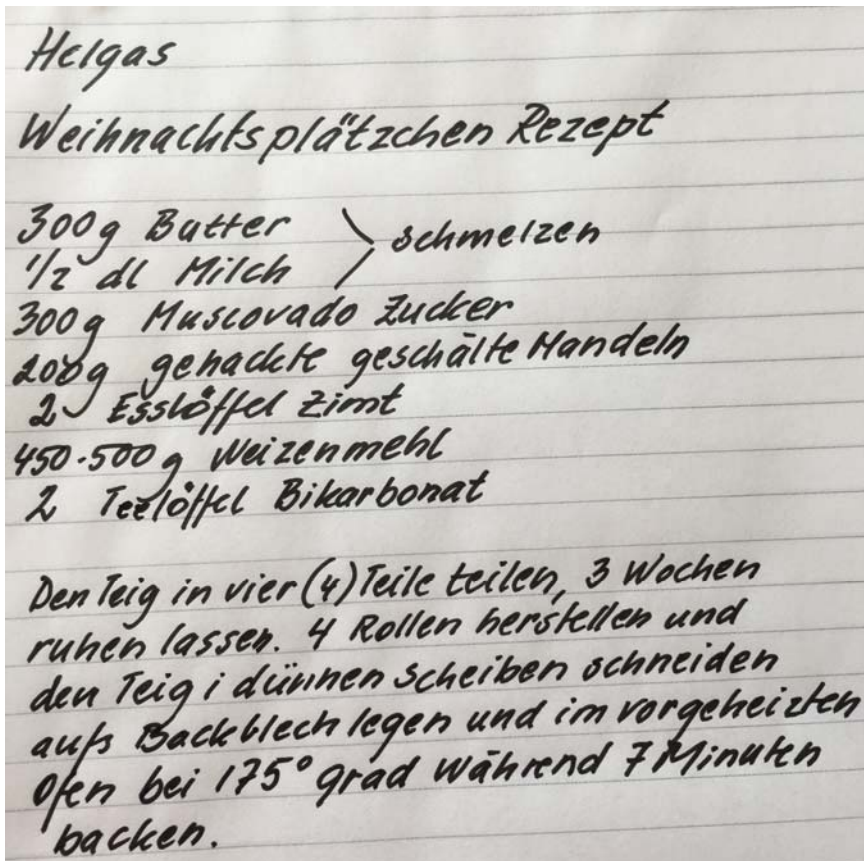 Helgas
Weihnachtsplätzchen Rezept
300g Butter > schmelzen
1/2 dl Milch
300g Muscovado Zucker
200g gehackte geschälte Mandeln
2 Esslöffel Zimt
450-500g Weizenmehl
2 Teelöffel Bikarbonat
Den Teig in vier (4) Teile teilen, 3 Wochen
ruhen lassen. 4 Rollen herstellen und
den Teig i dünnen Scheiben schneiden
aufs Backblech legen und im vorgeheizten
Ofen bei 175° grad während 7 Minuten
backen.